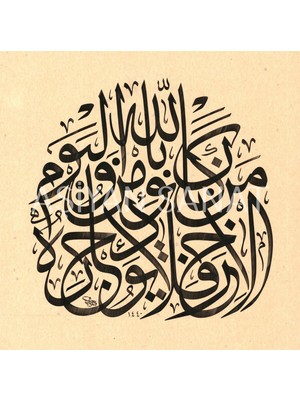 من كان يؤمن بالله واليوم الآخر فلا يؤذ جاره
١٤٤٠
AŞİYAN SANAT